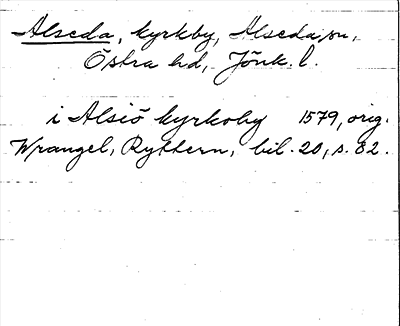 Alseda, kyrkby, Alseda sn,
Östra hd, Jönk. l.
i Alsiö kyrkoby 1579, orig.
Wrangel, Rytthern, bil. 20, s. 82.